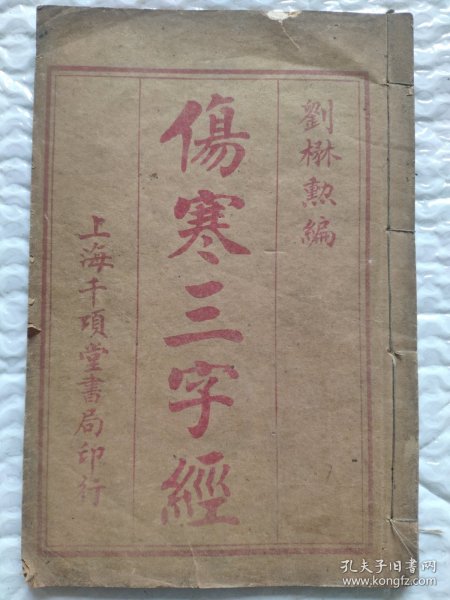 劉楙勲編
傷寒三字經
上海千頃堂書局印行
孔夫子旧书网
www.kongfz.com